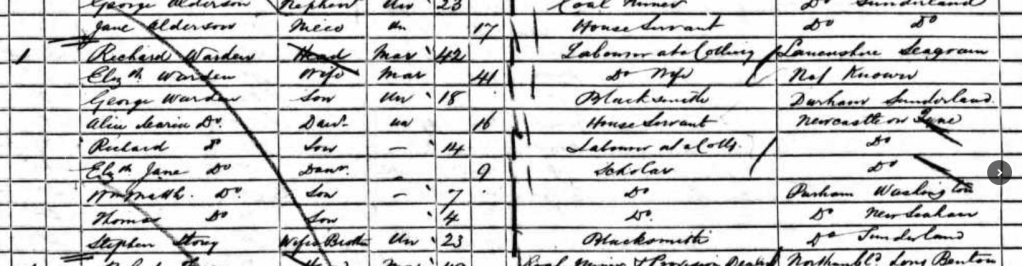 George Alderson Nephew Un 23 Coal Miner Do Sunderland
Jane Alderson Niece Un 17 House Servant Do Do
1 Richard Warden Head Mar 42 Labourer at a Colliery Lancashire Seagram
Elizth Warden Wife Mar 41 Do Wife Not Known
George Warden Son Un 18 Blacksmith Durham Sunderland
Alice Maria Do. Daur. Un 16 House Servant Newcastle on Tyne
Richard Do Son — 14 Labourer at a Colly Do
Elizth Jane Do Daur. — 9 Scholar Do
Wm Matth. Do. Son — 7 Do Durham Washington
Thomas Do Son 4 Do. Do New Seaham
Stephen Story Wifes Brother Un 23 Blacksmith Do Sunderland
Coal Miner & Provision Dealer Northumbd. Long Benton